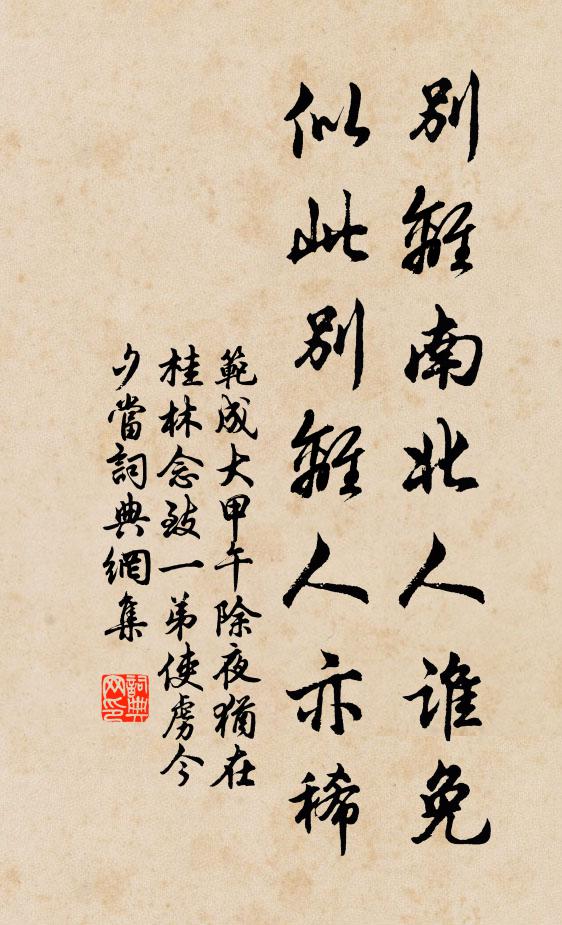 別離南北人誰免
似此別離人亦稀
範成大甲午除夜猶在
桂林念致一弟使虜今
夕當詞典網集
詞典網印